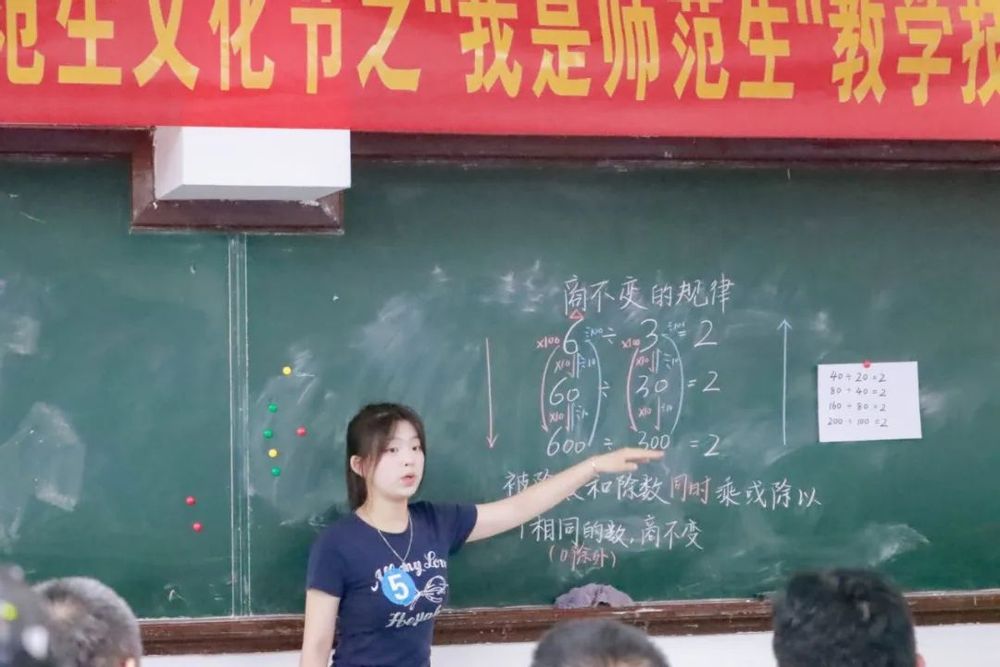 范生文化节之"我是师范生"教学技
商不变的规律
6 ÷ 3 = 2
×100 ÷100 ×100 ÷100
×10 ÷10 ×10 ÷10
60 ÷ 30 = 2
×10 ÷10 ×10 ÷10
600 ÷ 300 = 2
被除数和除数同时乘或除以
相同的数,商不变
(0除外)
40 ÷ 20 = 2
80 ÷ 40 = 2
160 ÷ 80 = 2
200 ÷ 100 = 2
5